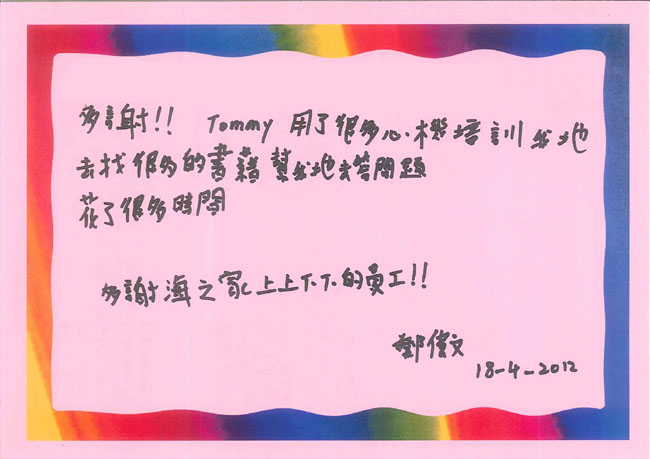 多謝!! Tommy 用了很多心機培訓我地
去找很多的書藉幫我地去答問題
花了很多時間
多謝海之家上上下下的員工!!
鄭偉文
18-4-2012